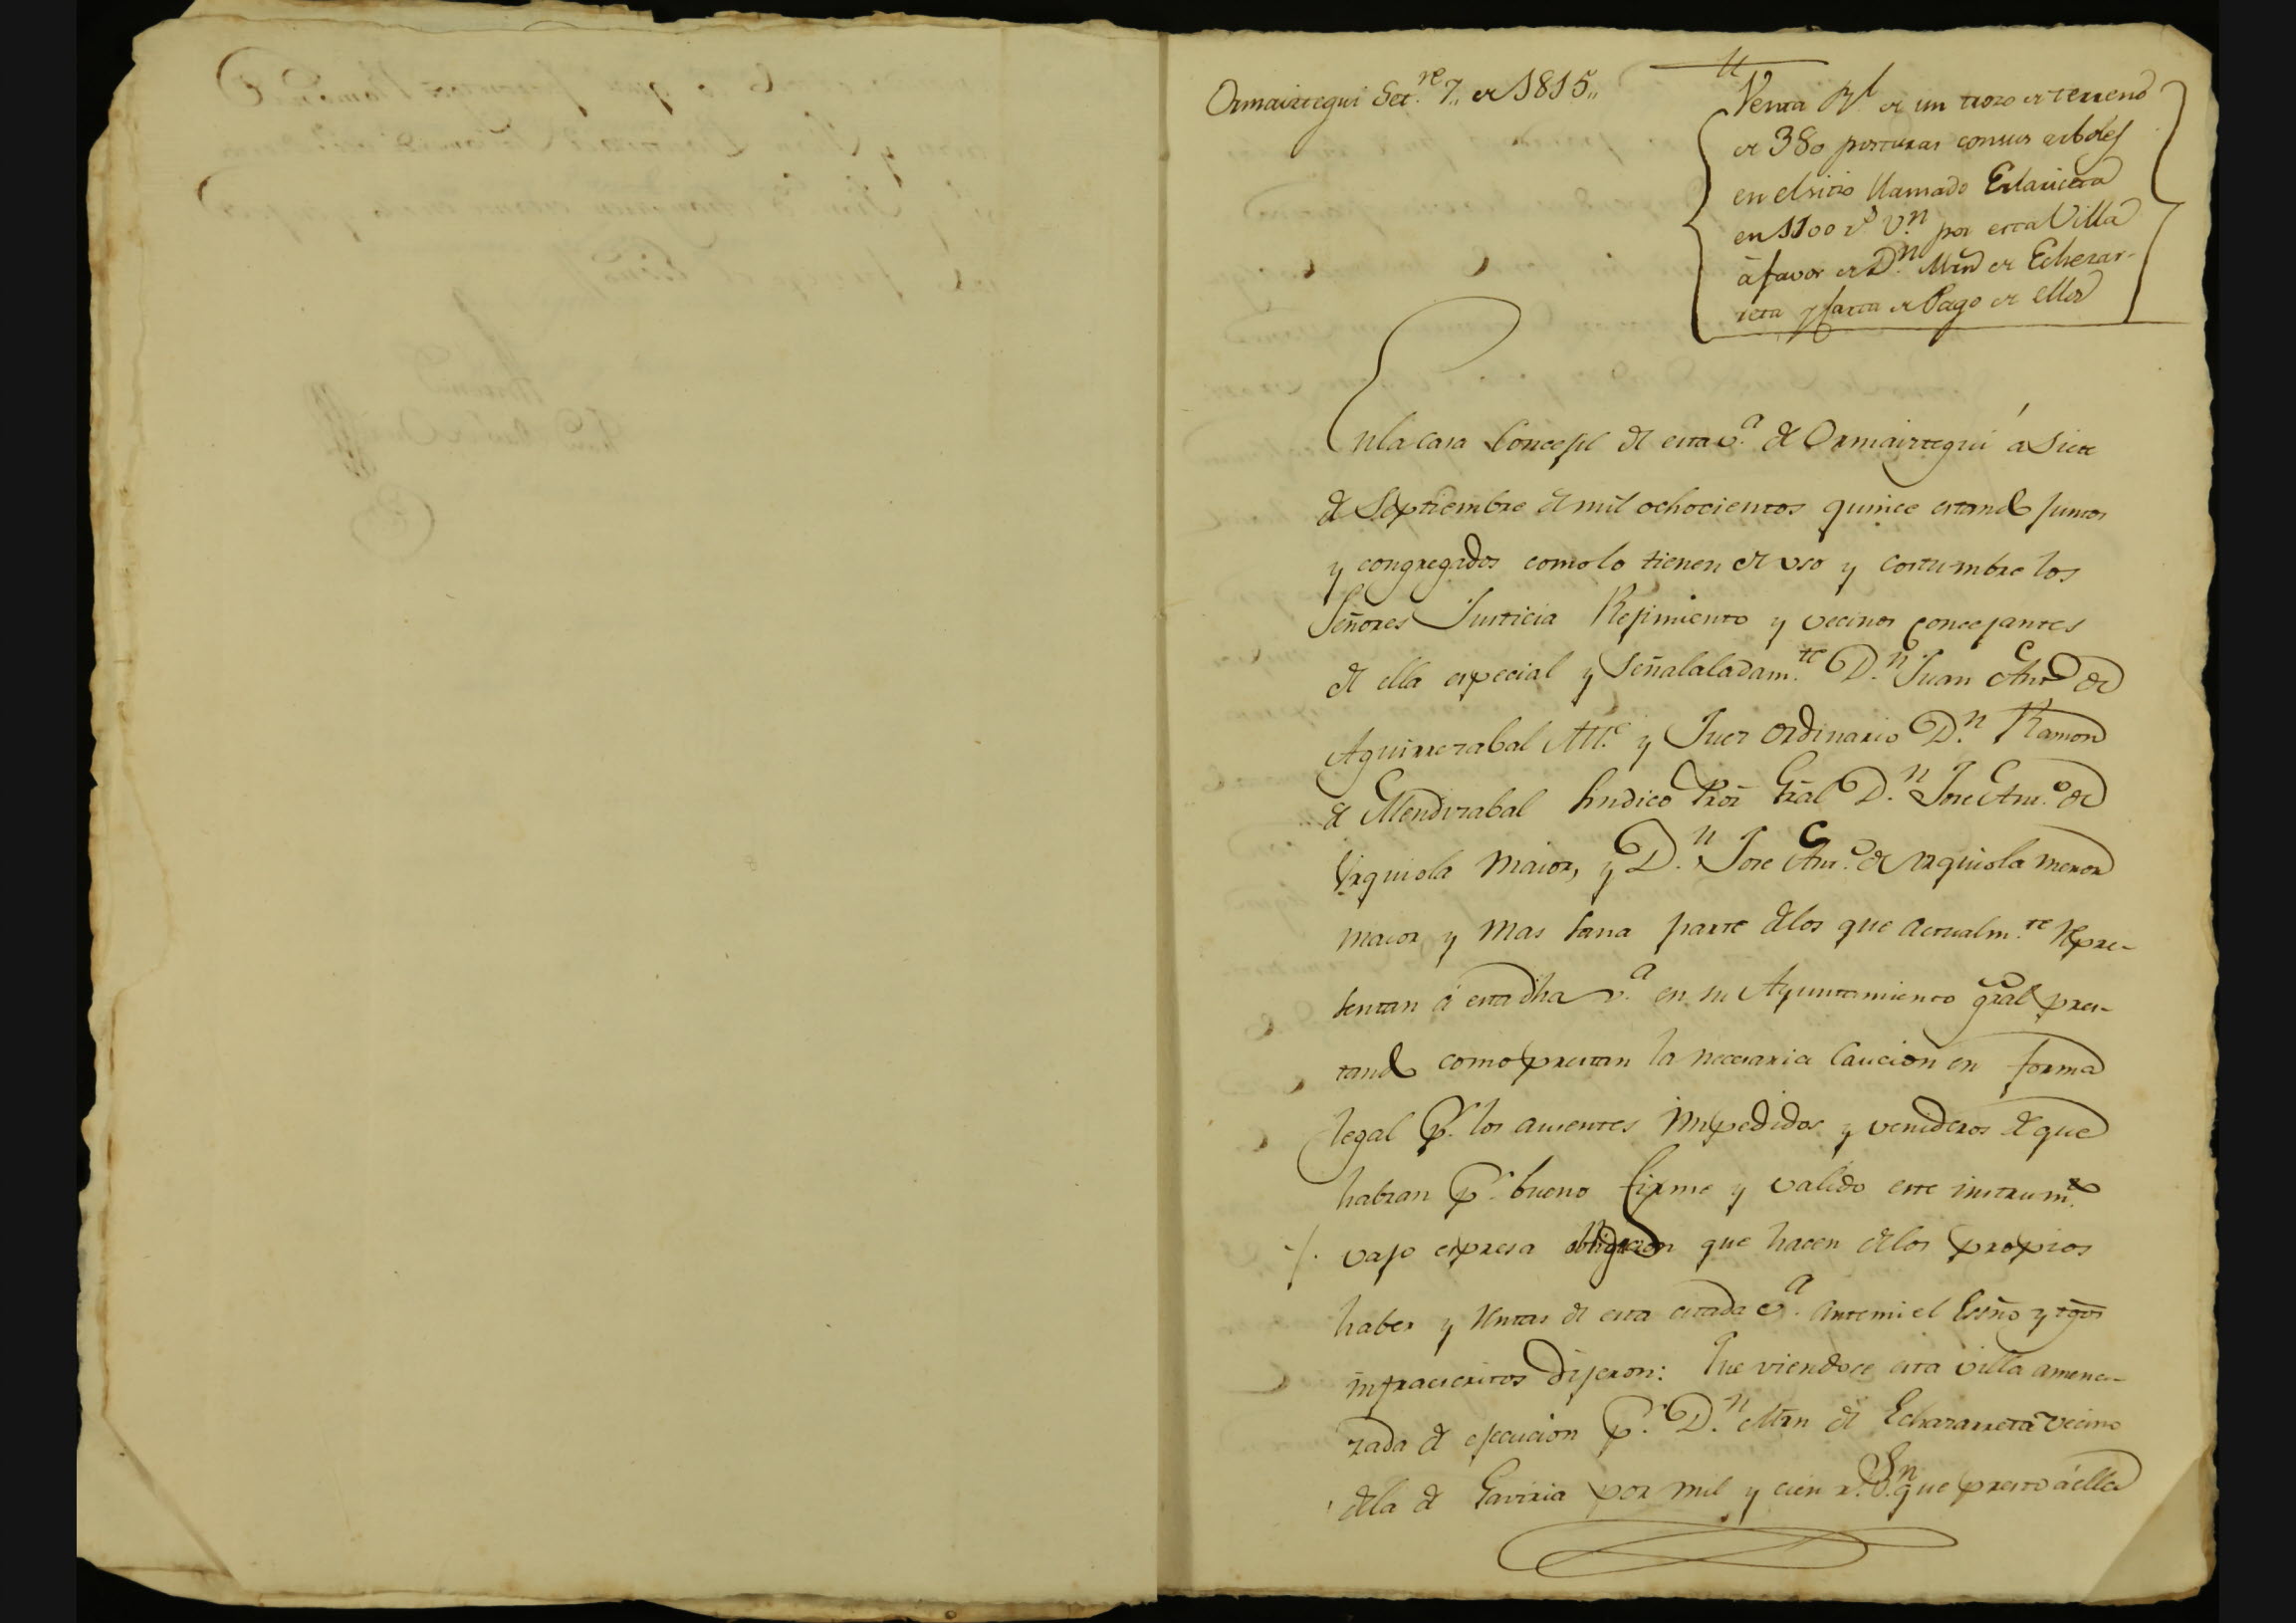 Ormaiztegui Set.re 7,, de 1815,,
Venta Rl. de un trozo de terreno
de 380 posturas con sus arboles
en el sitio llamado Erlaucieta
en 1100 rs. Vn. por esta Villa
à favor de Dn. Mrn de Echezar-
reta y Carta de Pago de ellos
En la casa Concejil de esta v.a de Ormaiztegui á Siete
de Septiembre de mil ochocientos quince estando juntos
y congregados como lo tienen de uso y costumbre los
Señores Justicia Rejimiento y vecinos concejantes
de ella especial y señalaladam.te D.n Juan Ant.o de
Aguirrezabal Alle. y Juez ordinario D.n Ramon
de Mendizabal Sindico Pror Gral D.n Jose Ant.o de
Urquiola maior, y D.n Jose Ant.o de Urquiola menor
maior y mas sana parte de los que actualm.te Repre-
sentan á esta dha v.a en su Ayuntamiento gral pres-
tando como prestan la necesaria caucion en forma
legal p.r los ausentes impedidos y venideros de que
habran p.r bueno firme y valido este instrum.to
vajo espresa obligacion que hacen de los propios
haber y Rentas de esta citada v.a ante mi el Essno y tgos
infraescritos dijeron: Que viendose esta villa amena-
zada de ejecucion p.r D.n Mrn de Echezarreta vecino
de la de Gaviria por mil y cien r.s v.n que presto á ella